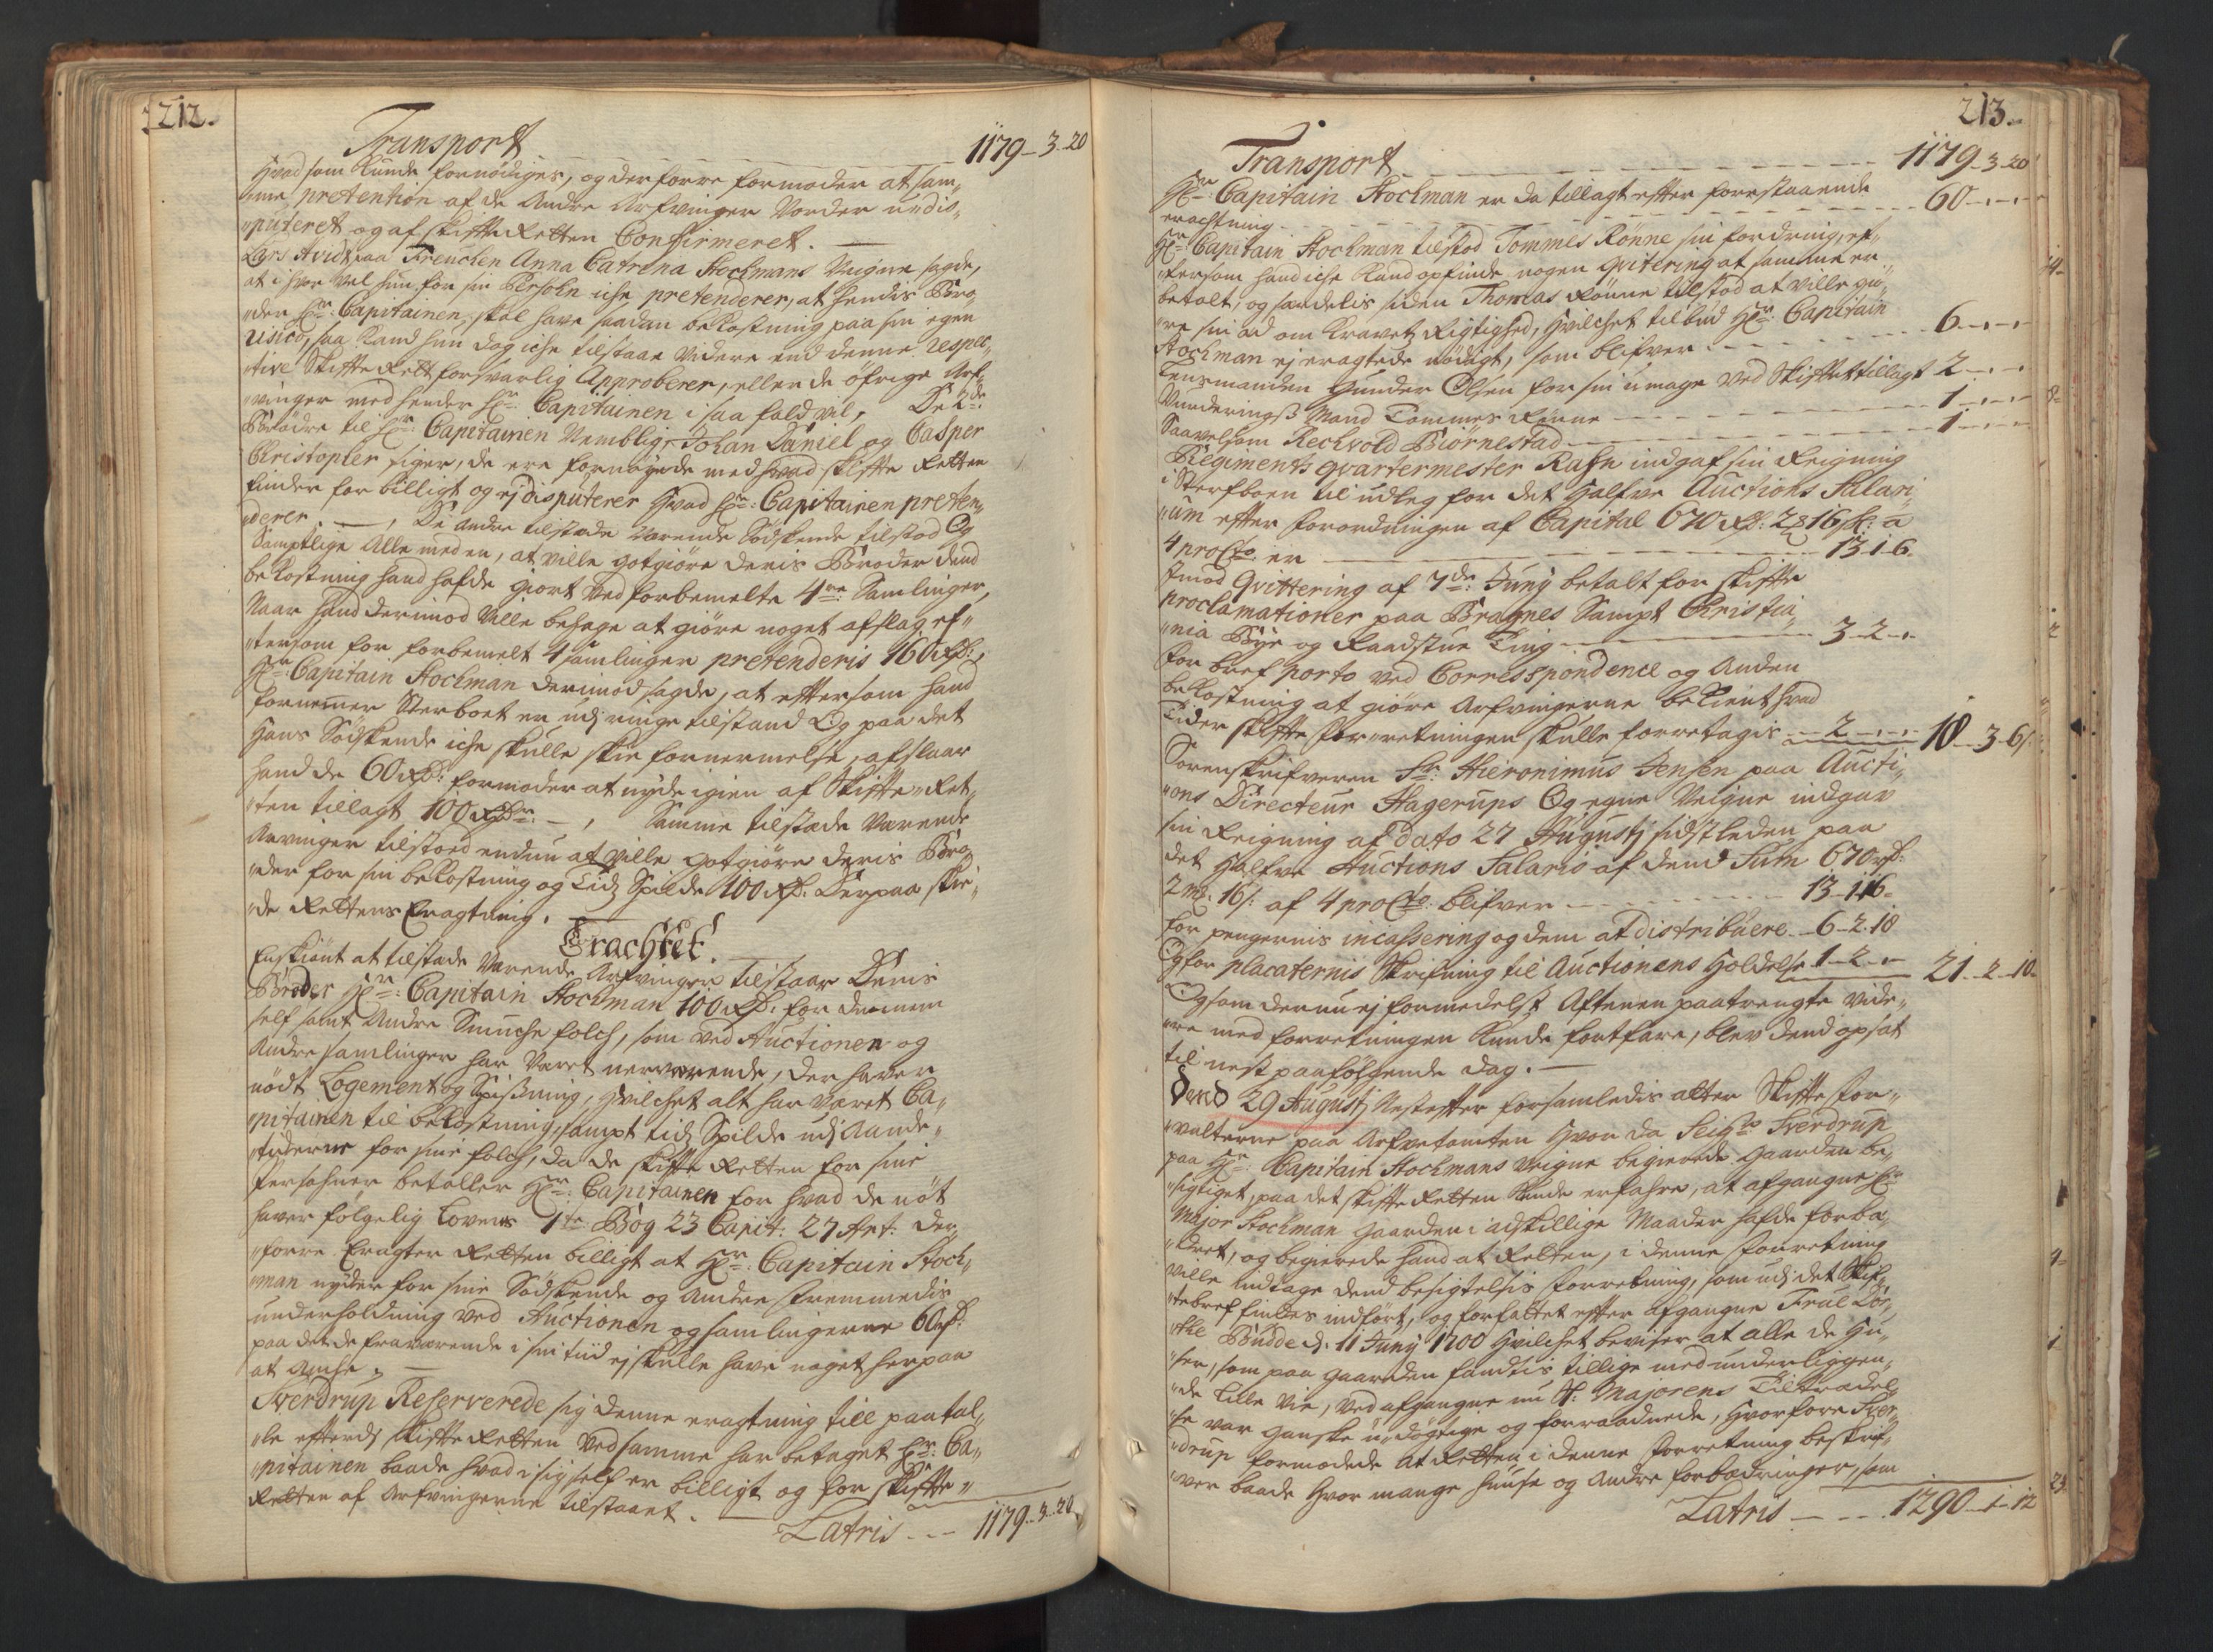 212.
Transport 1179-3-20
Hvad som kunde fornødiges, og derforre formoder at sam„
„me pretention af de Andre Arfvinger Vorder u=dis„
„puteret og af skiffte Retten Confirmeret. —
Lars Avidt paa Freuchen Anna Catrena Stochmans Veigne sagde,
at i hvor vel hun for sin Persohn iche pretenderer, at hendis Bro„
„der Hr: Capitainen skal have saadan bekostning paa sin egen
Usico, saa kand hun dog iche tilstaae Videre end denne respec„
„tive Skiffte Rett forsvarlig Approberer, eller de øfrige Arf„
„vinger med hender Hr: Capitainen i saa fald vil, De 2de
Brødre til Hr: Capitainen Nemblig, Johan Daniel og Casper
Christopher siger, de ere fornøyede med hvad skiffte Retten
finder for billigt og ej disputerer Hvad Hr: Capitainen preten„
„derer. —, De andre tilstæde værende Södskende tilstod Og
Samptlige Alle med en, at ville gotgiöre deris Broder dend
bekostning hand hafde giort ved forbemelte 4re Samlinger,
Naar hand derimod Ville behage at giöre noget afslag ef„
„tersom for forbemelt 4 samlinger pretenderis 160 Rd:,
Hr: Capitain Stochman derimod sagde, at effter som hand
fornemmer Sterboet er udj ringe tilstand Og paa det
Hans Södskende iche skulle skee fornermelse, afslaar
hand de 60 Rd: formoder at nyde igien af Skiffte=Ret„
„ten tillagt 100 Rdr: —, Samme tilstæde Værende
Arvinger tilstoed endnu at ville gotgiöre deris Bro„
„der for sin bekostning og Tids Spilde 100 Rd. Derpaa skee„
„de Rettens Eragtning. —
Erachtet.
Enskiönt at tilstæde Værende Arfvinger tilstaar Deris
Broder Hr: Capitain Stochman 100 Rd: for dennem
self samt Andre Smuche folch, som ved Auctionen og
Andre samlinger har Været nerværende, der haver
nödt Logement og Spisning, Hvilchet alt har været Ca„
„pitainen til bekostning, sampt tids Spilde udj Aande„
„tiderne for sine folch, da de skiffte Retten for sine
Persohner betaller Hr: Capitainen for hvad de nöt
haver fölgelig Lovens 1te Bog 23 Capit: 27 Art: der„
„forre Eragter Retten billigt at Hr: Capitain Stoch„
„man nyder for sine Södskende og Andre fremmedis
underholdning ved Auctionen og samlingerne 60 rd:
paa det de fraværende i sin tiid ej skulle have noget herpaa
at Anche. —
Sverdrup Reserverede sig denne eragtning till paatal„
„le efterdj skiffte Retten ved samme har betaget Hr: Ca„
„pitainen baade hvad i sig self er billigt og for skiffte=
Retten af Arfvingerne tilstaaet. —
Latris --- 1179-3-20
213.
Transport 1179-3-20
Hr: Capitain Stochman er da tillagt effter forrestaaende
erachtning 60-"-"
Hr: Capitain Stochman tilstod Tommes Rönne sin fordring, ef„
„tersom hand iche kand opfinde nogen qvitering at samme er
betalt, og saadelis siden Thomas Rönne tilstod at ville giö„
„re sin æd om kravets Rigtighed, Hvilchet tilbud Hr: Capitain
Stochman ej eragtede nödigt, som blifver 6-"-"
Lensmanden Gunder Olsen for sin umage ved Skifftet tillagt 2-"-"
Vurderings Mand Tommes Rönne 1-"-"
Saavelsom Rechvold Biörnestad 1-"-"
Regiments qvartermester Rahn indgaf sin Reigning
i Sterfboen til udleg for det Halfve Auctions Salari„
„um effter forordningen af Capital 670 Rd: 2 & 16 sk: a
4 proCto er 13-1-6
Imod Qvittering af 7de: Junj betalt for skiffte
proclamationer paa Bragnes Sampt Christia„
„nia Bye og Raadstue Ting 3-2-"
for bref porto ved Correspondence og Anden
bekostning at giöre Arfvingerne bekient hvad
Tider skiffte forretningen skulle forretagis 2-"-" 18-3-6
Sorenskrifveren Sr: Hieronimus Jensen paa Aucti„
„ons Directeur Hagerups Og egne Veigne indgav
sin Reigning af dato 27 Augustj sidstleden paa
det Halfve Auctions Salaris af dend Sum 670 rd:
2 mk: 16 s: af 4 proCto: blifver 13-1-16
for pengernis incassering og dem at distribuere 6-2-18
Og for placaternis Skrifning til Auctionens Holdelse 1-2-" 21-2-10
Og som der nu ej formedelst Aftenen paatrengte vide„
„re med forretningen kunde fortfare, blev dend opsat
til nest paafölgende dag. —
Dend 29 Augustj Nest effter forsamledis atter Skiffte for„
„valterne paa Arfvetomten Hvor da Seigr Sverdrup
paa Hr: Capitain Stochmans veigne begierede Gaarden be„
„sigtiget, paa det skiffte Retten kunde erfahre, at afgangne Hr:
Major Stochman Gaarden i adskillige Maader hafde forbæ„
„dret, og begierede hand at Retten, i denne forretning
ville Indtage dend besigtelsis forretning, som udj det Skif„
„tebref findes indfört, og forfattet effter afgangne Frue Dor„
„the Budde d: 11 Junj 1700 Hvilchet beviser at alle de Hu„
„ser, som paa gaarden fandtis tillige med underliggen„
„de Lille Vie, ved afgangne nu H: Majorens Tiltrædel„
„se var ganske u=dögtige og forraadnede, Hvorfore Sver„
„drup formodede at Retten i denne forretning beskrif„
„ver baade Hvor mange Huuse og Andre forbædringer, som
Latris --- 1290-1-12